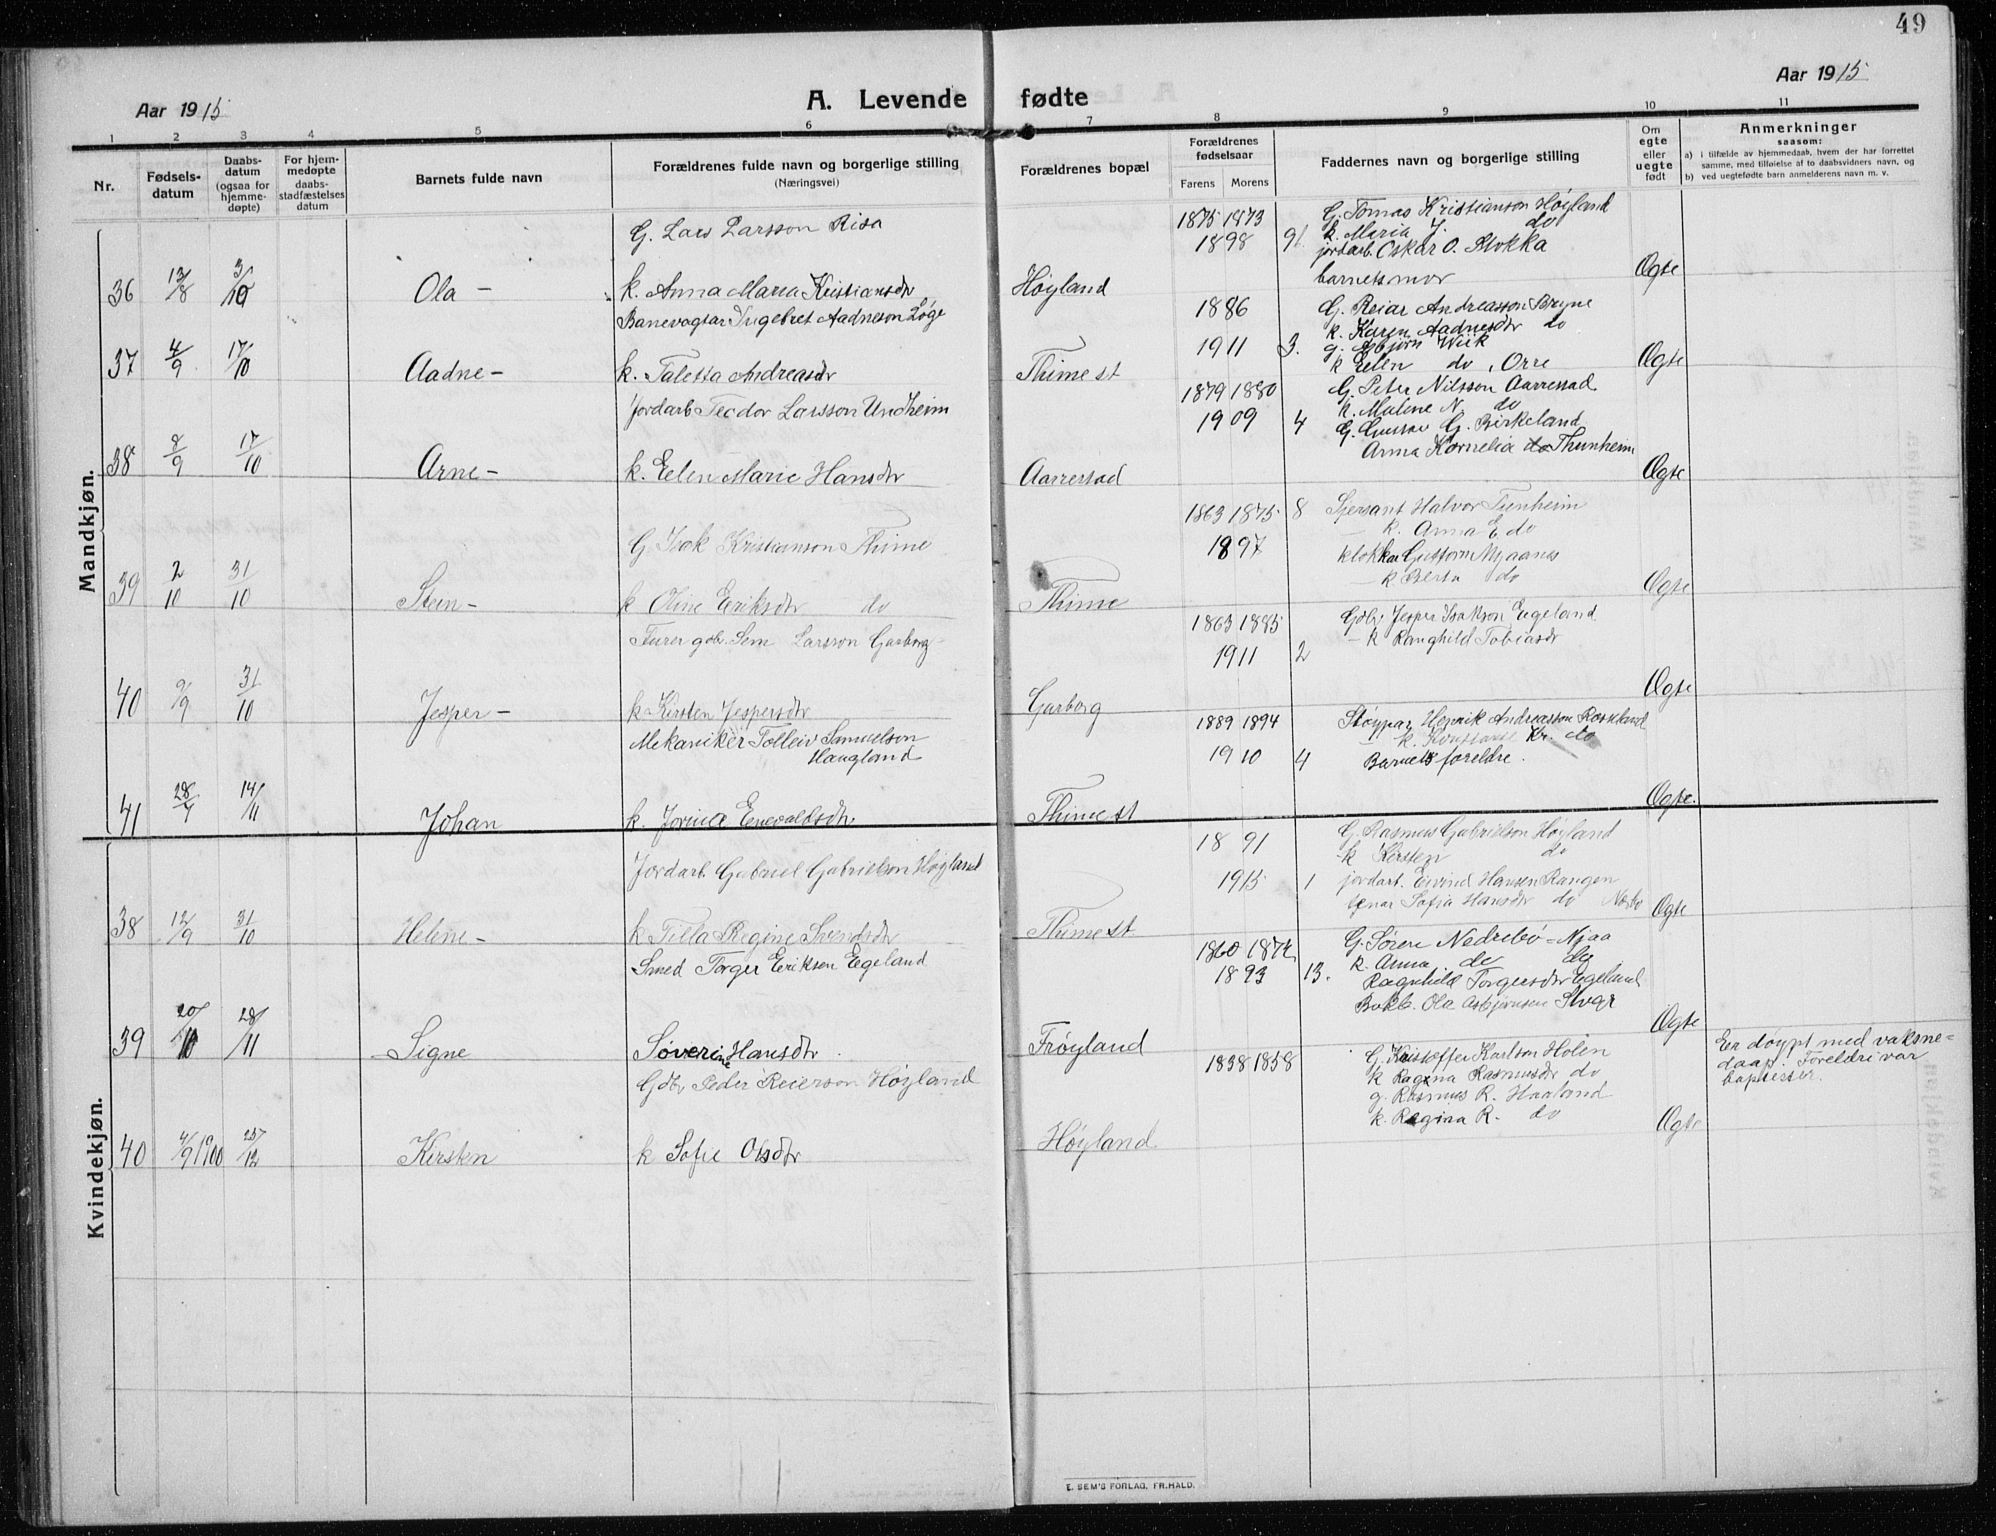 49
Aar 1915
A. Levende fødte
Aar 1915
1 2 3 4 5 6 7 8 9 10 11
Nr.
Fødsels-datum
Daabs-datum (ogsaa for hjemme-døpte)
For hjem-medøpte daabs-stadfæstelses datum
Barnets fulde navn
Forældrenes fulde navn og borgerlige stilling
(Næringsvei)
Forældrenes bopæl
Forældrenes fødselsaar
Farens Morens
Faddernes navn og borgerlige stilling
Om egte eller uegte født
Anmerkninger
saasom:
a) i tilfælde av hjemmedaab, hvem der har forrettet samme, med tilføielse af to daabsvidners navn, og
b) ved uegtefødte barn anmelderens navn m. v.
Mandkjøn.
G. Lars Larsson Risa
1875 1873
G. Tomas Kristianson Høyland
k. Maria J. do
1898 9
jordarb. Oskar O. Stokka
barnets mor
36 13/8 3/10 Ola - k. Anna Maria Kristiansdtr Høyland Øgte
Banevogtar Ingebret Aadneson Løge
1886
G. Reiar Andreasson Bryne
k. Karen Aadnesdtr do
1911 3.
g. Asbjørn Wiik
k Eelen do, Orre
37 4/9 17/10 Aadne - k. Taletta Andreasdtr Thime st Øgte
Jordarb Teodor Larsson Undheim
1879 1880
G. Peter Nilsson Aarrestad
k. Malene N do
1909 4
G. Gustav G. Birkeland
Anna Kornelia do Thunheim
38 8/9 17/10 Arne - k. Eelen Marie Hansdtr Aarrestad Øgte
G. Isak Kristianson Thime
1863 1875 8
Sjersant Halvor Tunheim
- k. Anna E. do
1897
klokkar Guttorm Mjaanes
- k Berta do
39 2/10 31/10 Steen - k Oline Eriksdtr do Thime Øgte
Furer gdb. Sem Larsson Garborg
1863 1885
Gdbr Jesper Isakson Eegeland
- k Ranghild Tobiasdtr
1911 2
40 9/9 31/10 Jesper - k Kirsten Jespersdtr Garborg Øgte
Mekaniker Tolleiv Samuelson
Haugland
1889 1894
Støypar Henrik Andreasson Rosseland
- k. Konstanse Kr. do
1910 4
Barnets foreldre.
41 28/7 14/11 Johan k. Jorina Enevaldsdtr. Thime st Øgte.
Kvindekjøn.
Jordarb. Gabriel Gabrielson Høyland
1891
G. Rasmus Gabrielson Høyland
k Kirsten do
1915 1
jordarb. Eivind Hansen Rangen
Sofia Hansdtr do Nærbø
38 12/9 31/10 Helene - k Tilla Regine Svendsdtr Thime st Øgte
Smed Torger Eeriksen Eegeland
1860 1872
G. Søren Nedrebø - Njaa
k. Anna do do
1893 13.
Ragnhild Torgersdtr Egeland
Bokb. Ola Asbjørnsen Stvgr
39 20/10 28/11 Signe Søverine Hansdtr Frøyland Øgte
Gdbr Peder Reierson Høyland
1838 1858
G. Kristoffer Karlson Holen
k Ragna Rasmusdtr do
g. Rasmus R. Haaland
k. Regina R. do
Er døypt med vaksne-
daap. Foreldri var
baptister.
40 4/9 1900 25/12 Kirsten k Sofie Olsdtr Høyland Øgte
E. SEM'S FORLAG, FR.HALD.